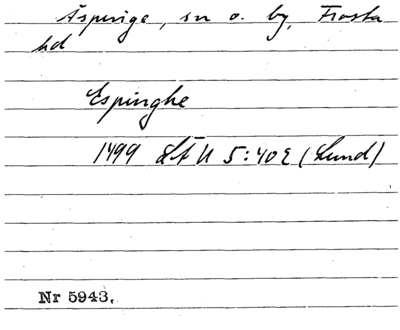 Äspinge, sn o. by, Frosta
hd
Espinghe
1499 LÄU 5:402 (Lund)
Nr 5943.